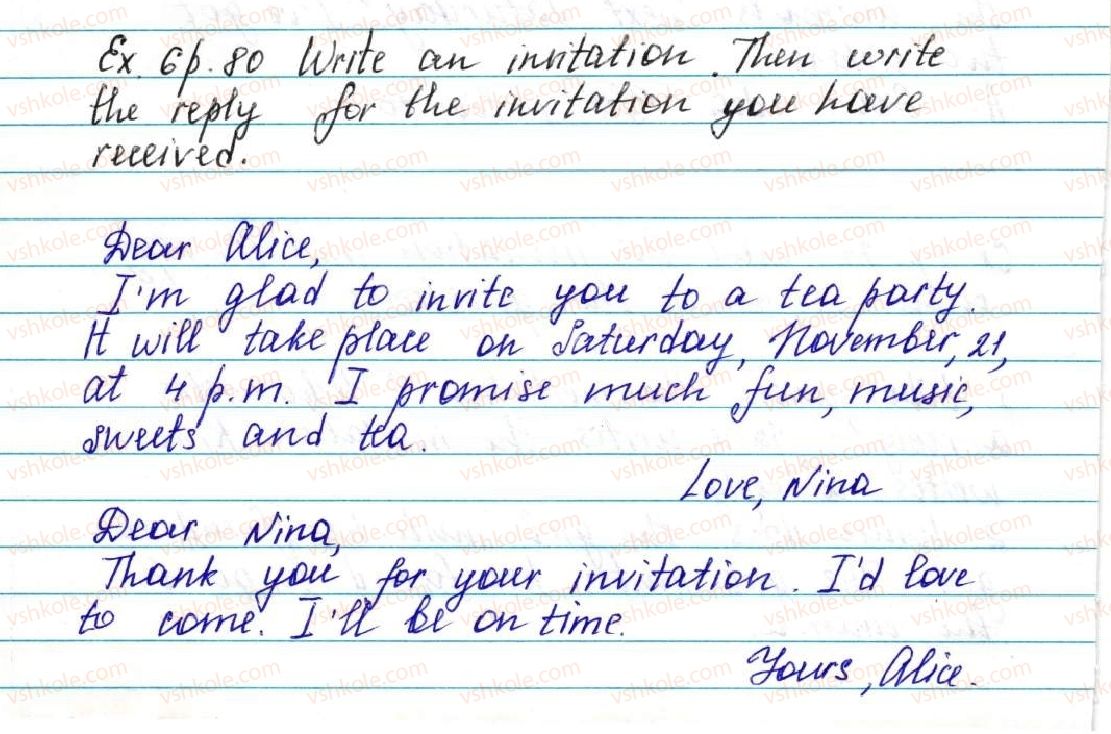 Ex. 6 p. 80 Write an invitation. Then write
the reply for the invitation you have
received.
Dear Alice,
I'm glad to invite you to a tea party.
It will take place on Saturday, November, 21,
at 4 p.m. I promise much fun, music,
sweets and tea.
Love, Nina
Dear Nina,
Thank you for your invitation. I'd love
to come. I'll be on time.
Yours, Alice.
vshkole.com